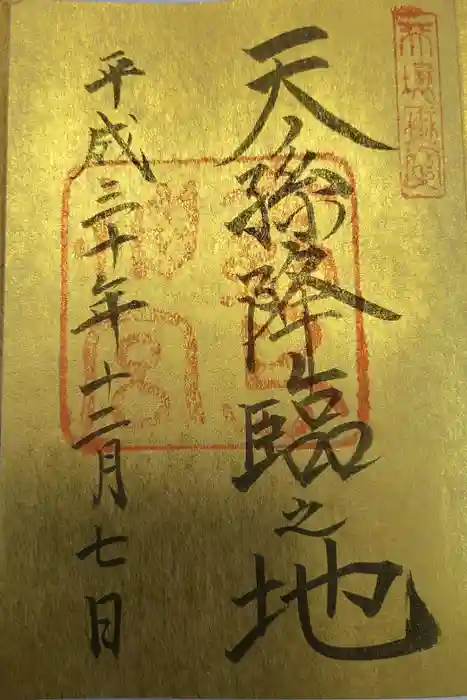 天孫降臨之地
平成三十年十二月七日